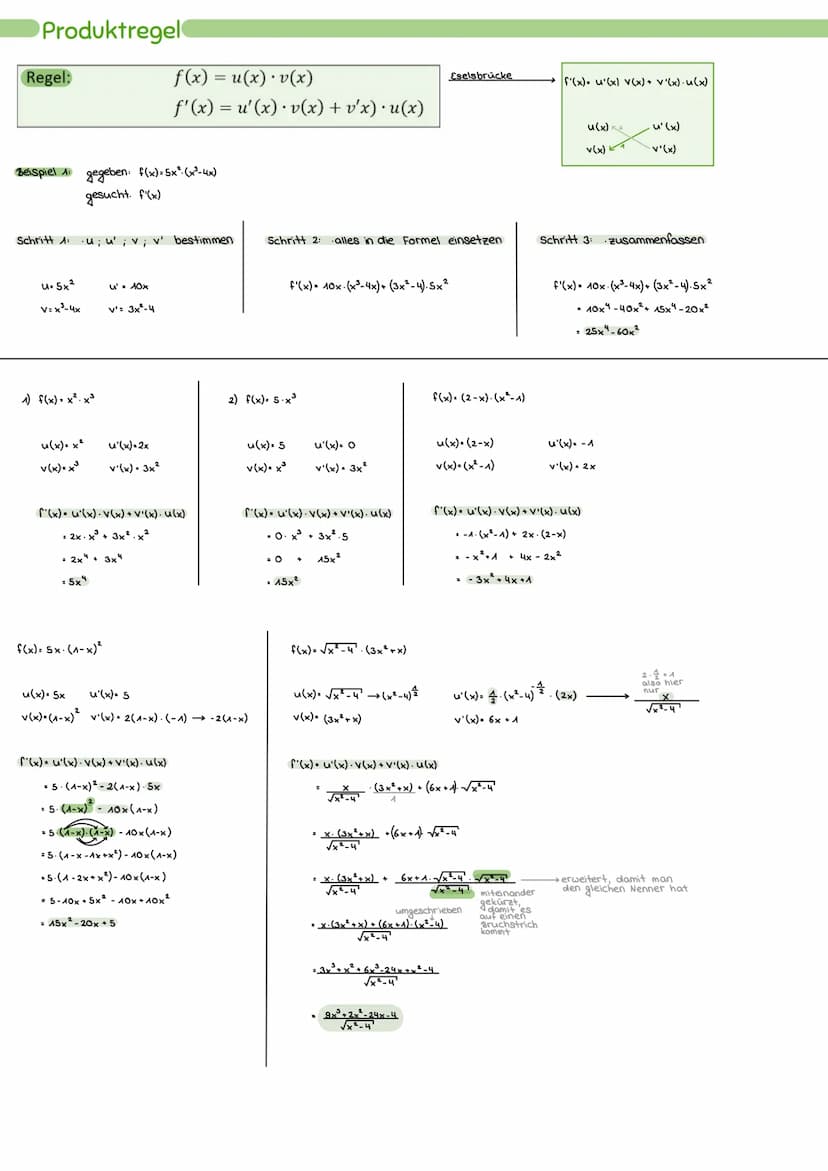 Produktregel
Regel: f(x) = u(x) · v(x)
f'(x) = u'(x) · v(x) + v'x) · u(x)
Eselsbrücke
f'(x) = u'(x) v(x) + v'(x) · u(x)
u(x) u'(x)
v(x) v'(x)
Beispiel 1: gegeben: f(x) = 5x² · (x³-4x)
gesucht: f'(x)
Schritt 1: · u ; u' ; v ; v' bestimmen
u = 5x² u' = 10x
v = x³-4x v' = 3x²-4
Schritt 2: · alles in die Formel einsetzen
f'(x) = 10x · (x³-4x) + (3x²-4) · 5x²
Schritt 3: · zusammenfassen
f'(x) = 10x · (x³-4x) + (3x²-4) · 5x²
= 10x⁴ - 40x² + 15x⁴ - 20x²
= 25x⁴ - 60x²
1) f(x) = x² · x³
u(x) = x² u'(x) = 2x
v(x) = x³ v'(x) = 3x²
f'(x) = u'(x) · v(x) + v'(x) · u(x)
= 2x · x³ + 3x² · x²
= 2x⁴ + 3x⁴
= 5x⁴
2) f(x) = 5 · x³
u(x) = 5 u'(x) = 0
v(x) = x³ v'(x) = 3x²
f'(x) = u'(x) · v(x) + v'(x) · u(x)
= 0 · x³ + 3x² · 5
= 0 + 15x²
= 15x²
f(x) = (2-x) · (x²-1)
u(x) = (2-x) u'(x) = -1
v(x) = (x²-1) v'(x) = 2x
f'(x) = u'(x) · v(x) + v'(x) · u(x)
= -1 · (x²-1) + 2x · (2-x)
= -x²+1 + 4x - 2x²
= -3x² + 4x + 1
f(x) = 5x · (1-x)²
u(x) = 5x u'(x) = 5
v(x) = (1-x)² v'(x) = 2(1-x) · (-1) → -2(1-x)
f'(x) = u'(x) · v(x) + v'(x) · u(x)
= 5 · (1-x)² - 2(1-x) · 5x
= 5 · (1-x)² - 10x(1-x)
= 5 · (1-x) · (1-x) - 10x(1-x)
= 5 · (1-x-1x+x²) - 10x(1-x)
= 5 · (1-2x+x²) - 10x(1-x)
= 5 - 10x + 5x² - 10x + 10x²
= 15x² - 20x + 5
f(x) = √(x²-4) · (3x²+x)
u(x) = √(x²-4) → (x²-4)^(1/2) u'(x) = 1/2 · (x²-4)^(-1/2) · (2x) → x/√(x²-4)
2 · 1/2 = 1
also hier
nur
v(x) = (3x²+x) v'(x) = 6x + 1
f'(x) = u'(x) · v(x) + v'(x) · u(x)
= x/√(x²-4) · (3x²+x)/1 + (6x+1) · √(x²-4)
= x · (3x²+x)/√(x²-4) + (6x+1) · √(x²-4)
= x · (3x²+x)/√(x²-4) + 6x+1 · √(x²-4) · √(x²-4)/√(x²-4)
erweitert, damit man
den gleichen Nenner hat
miteinander
gekürzt,
damit es
auf einen
Bruchstrich
kommt
umgeschrieben
= x · (3x²+x) + (6x+1) · (x²-4)/√(x²-4)
= 3x³ + x² + 6x³ - 24x + x² - 4/√(x²-4)
= 9x³ + 2x² - 24x - 4/√(x²-4)